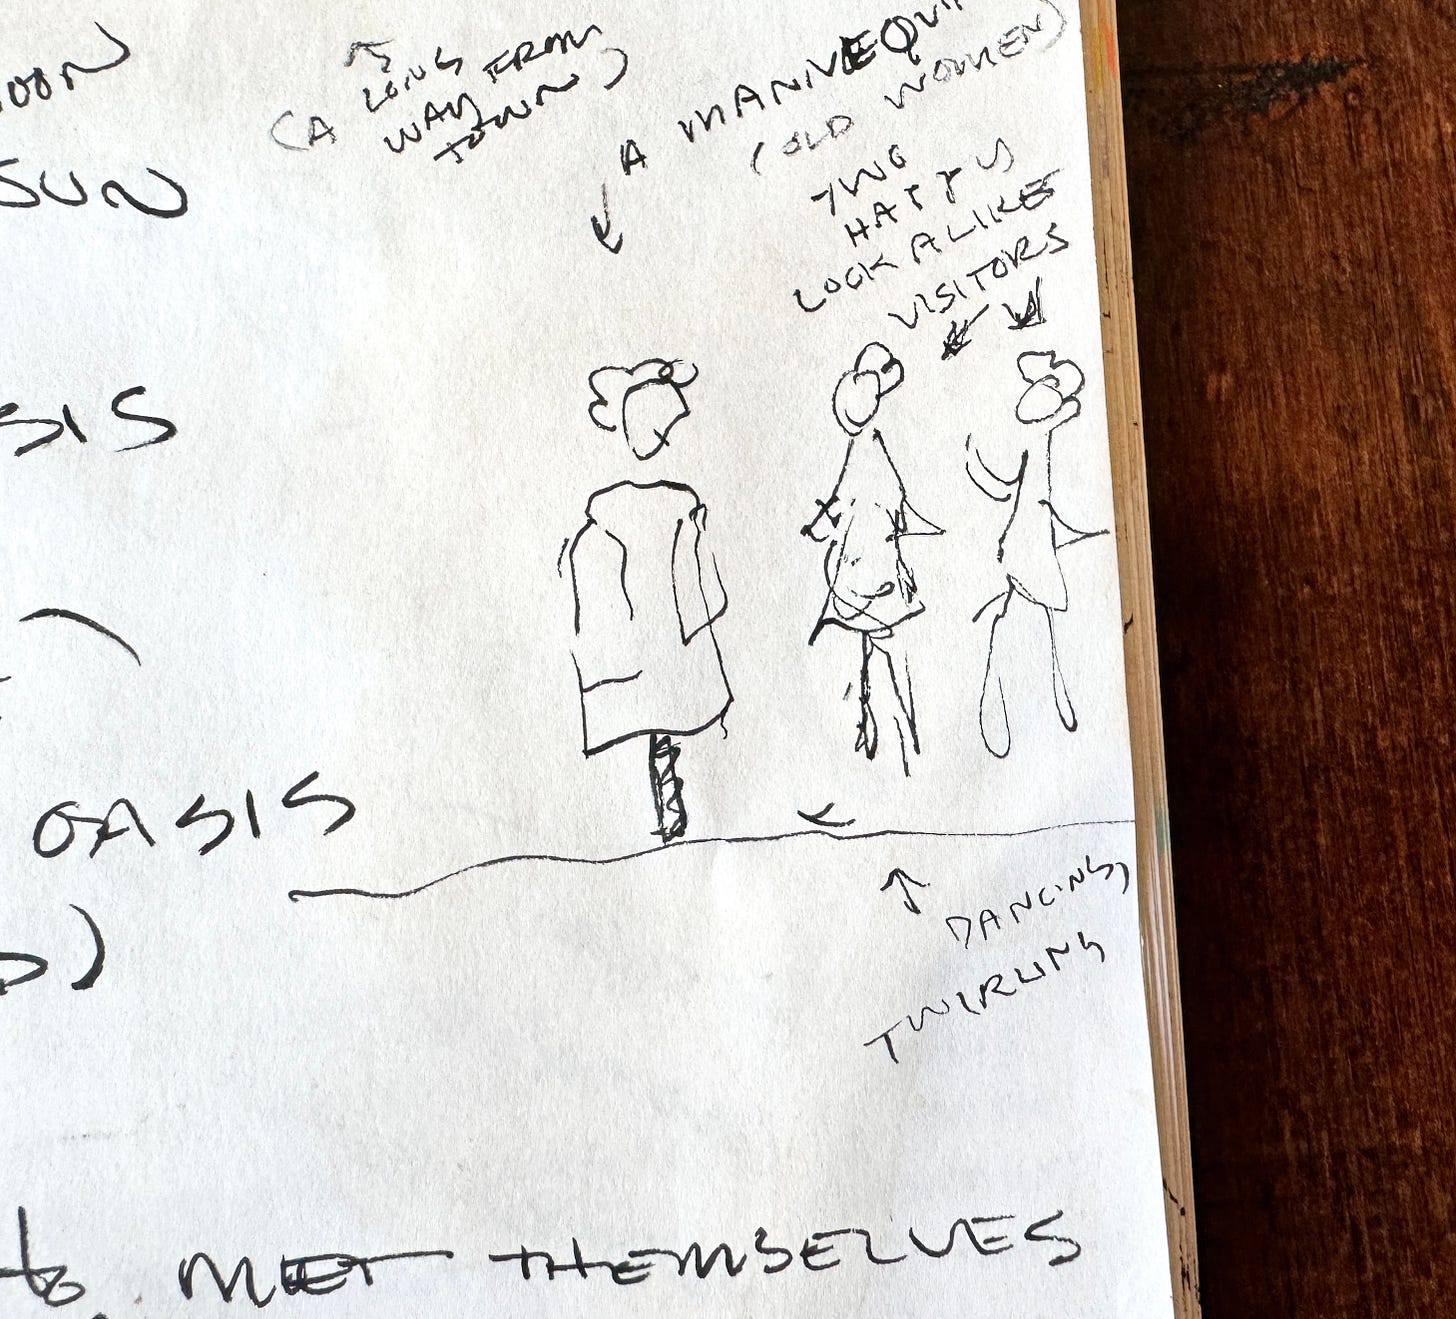 OON
SUN
(A LONG
WAY FROM
TOWN)
A MANNEQUI
(OLD WOMEN)
TWO
HAPPY
LOOKALIKE
VISITORS
SIS
OASIS
DANCING,
TWIRLING
to MET THEMSELVES